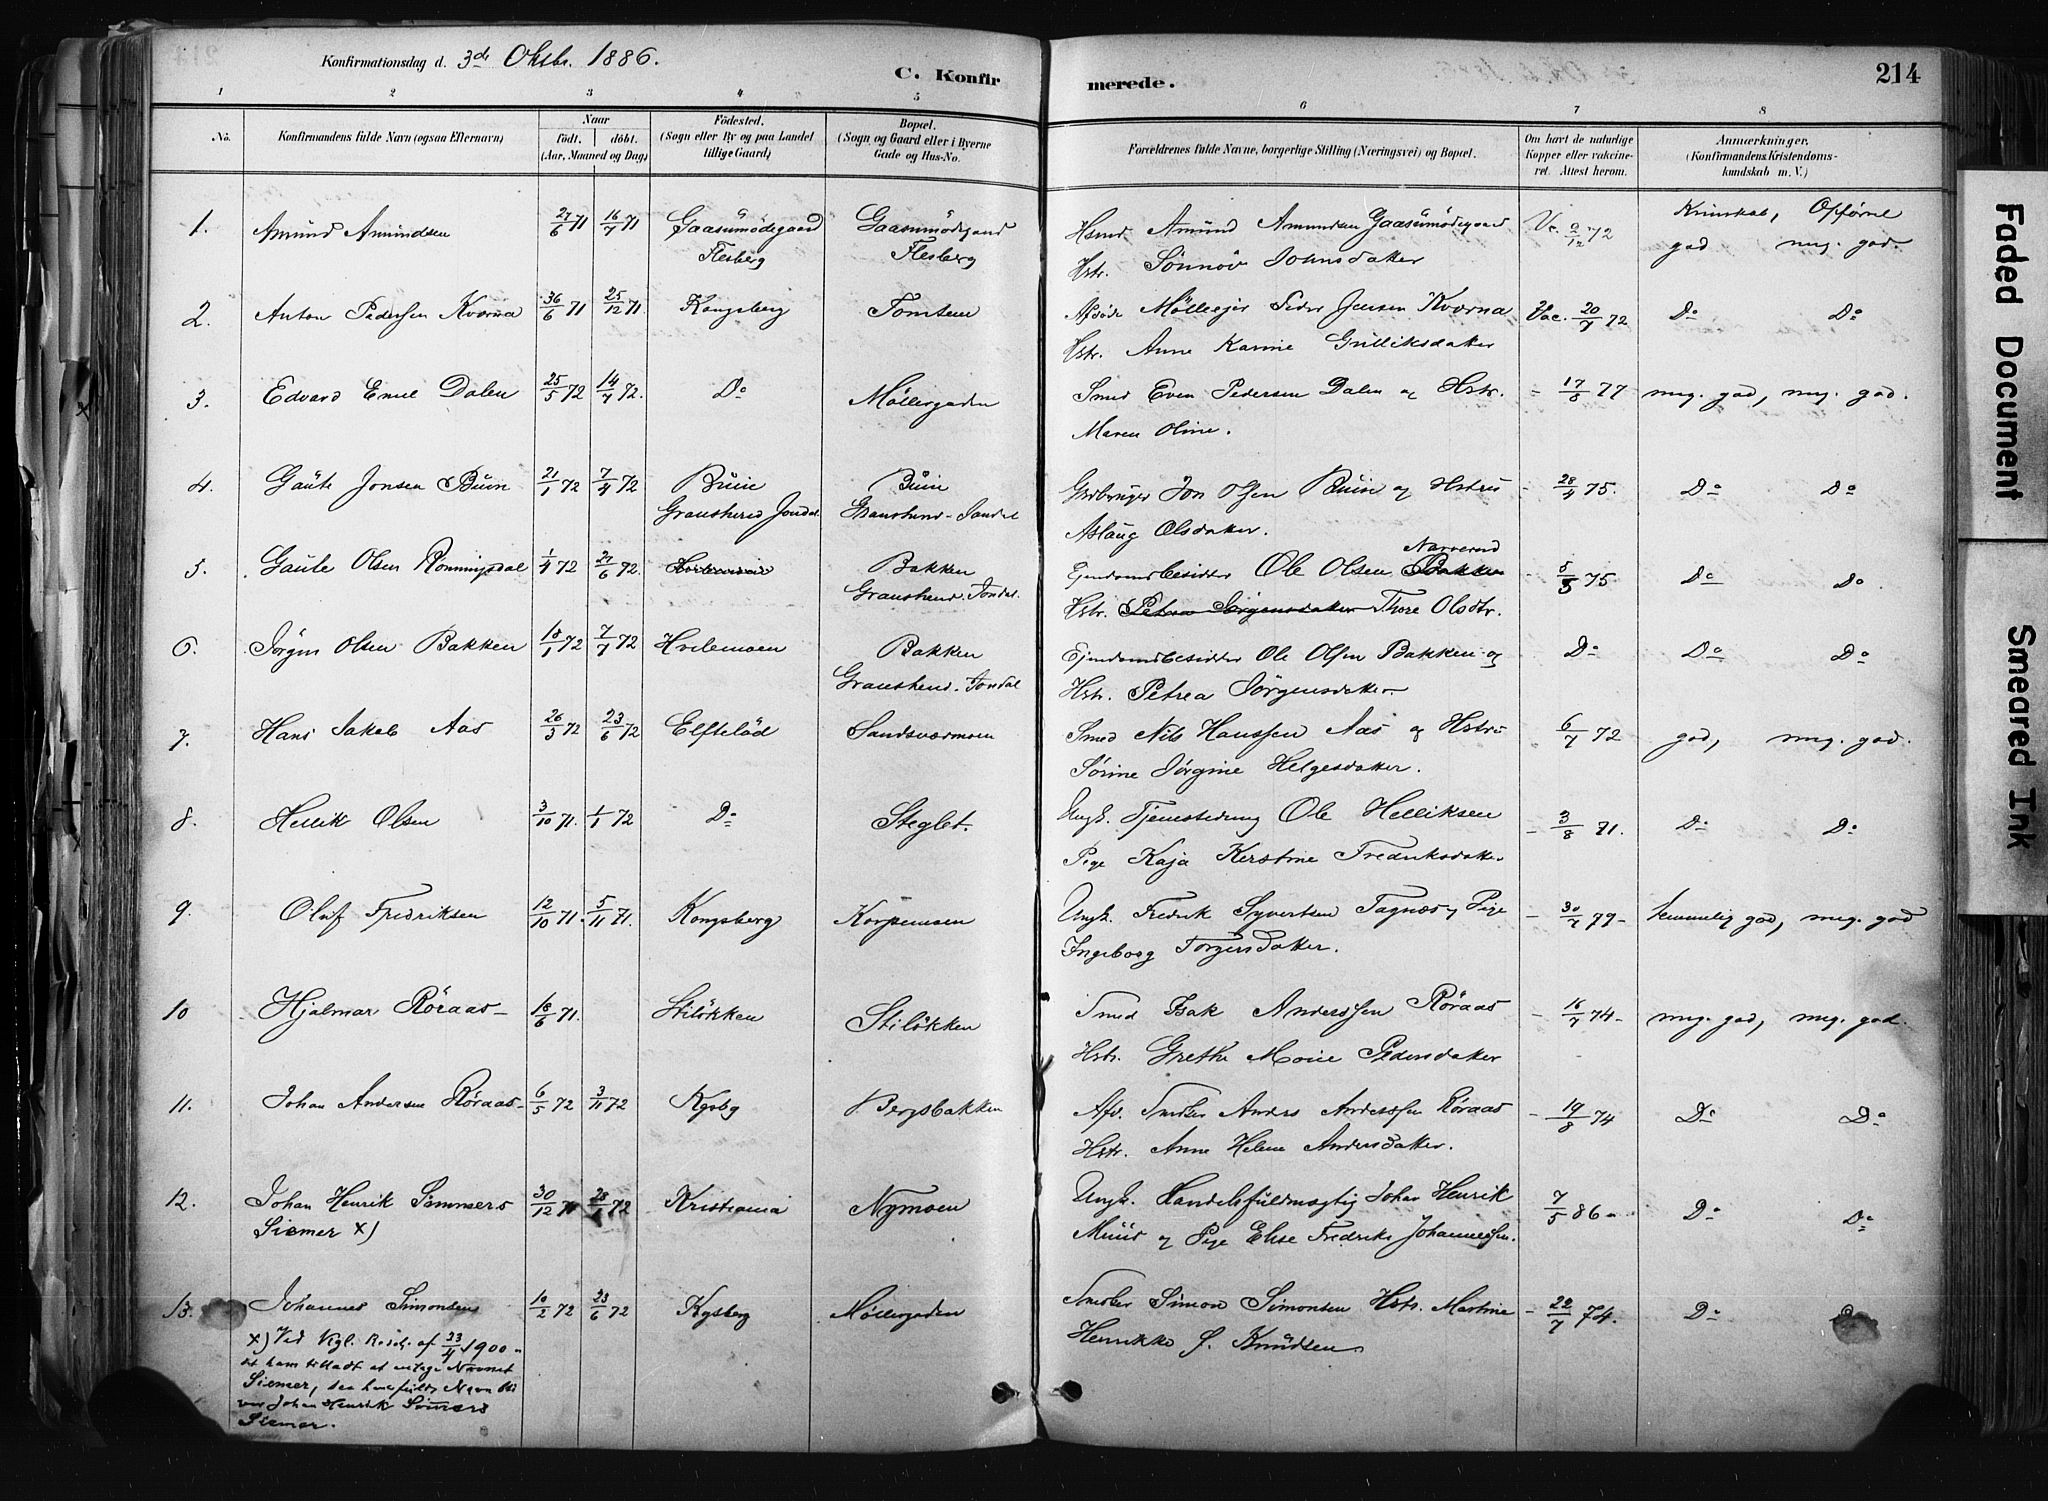 Konfirmationsdag d. 3de Oktbr. 1886.
C. Konfirmerede.
214
1 2 3 4 5 6 7 8
No.
Konfirmandens fulde Navn (ogsaa Efternavn)
Naar
födt. döbt.
(Aar, Maaned og Dag)
Födested.
(Sogn eller By og paa Landet
tillige Gaard)
Bopæl.
(Sogn og Gaard eller i Byerne
Gade og Hus-No.
Forældrenes fulde Navne, borgerlige Stilling (Næringsvei) og Bopæl.
Om havt de naturlige
Kopper eller vakcine-
ret. Attest herom.
Anmærkninger.
(Konfirmandens Kristendoms-
kundskab m. V.)
Kundskab, Opførsel
1. Amund Amundsen 27/6 71 16/7 71 Gaasumödegaard Gaasumödegaard Hsmd Amund Amundsen Gaasumödegaard Vc. 2/12 72 god meg. god.
Flesberg Flesberg Hstr. Sönnöv Johnsdatter
2. Anton Pedersen Kværna 36/6 71 25/12 71. Kongsberg Tomten Afdøde Mølleejer Peder Jensen Kværna Vac. 20/7 72 Do Do
Hstr. Anne Karine Gulliksdatter
3. Edvard Emil Dalen 25/5 72 14/7 72. Do Møllergaden Smed Even Pedersen Dalen og Hstr. - 17/8 77 meg. god, meg. god.
Maren Oline.
4. Gaute Jonsen Buin 21/1 72 7/4 72 Buin Buin Grdbruger Jon Olsen Buin og Hstru - 28/4 75. Do Do
Gransherred Jondal. Gransherred-Jondal Aslaug Olsdatter.
5. Gaute Olsen Rönningsdal 1/4 72 27/6 72. Hvilemoen Bakken Ejendomsbesidder Ole Olsen Bakken Narverud - 5/5 75 Do Do.
Gransherred. Jondal. Hstr. Petrea Jörgensdatter Thore Olsdtr.
6. Jörgen Olsen Bakken 18/1 72 7/7 72 Hvilemoen Bakken Ejendomsbesidder Ole Olsen Bakken og Do Do Do
Gransherred. Jondal Hstr. Petrea Jörgensdatter
7. Hans Jakob Aas 26/3 72 23/6 72 Efteløt Sandsværmoen Smed Nils Hanssen Aas og Hstru 6/7 72 god, meg. god.
Sörine Jörgine Helgesdatter.
8. Hellik Olsen 3/10 71. 1/1 72 Do Steglet. Ungk. Tjenestedreng Ole Helliksen - 3/8 71. Do Do
Pige Kaja Kerstine Fredriksdatter
9. Olaf Fredriksen 12/10 71. 5/11 71. Kongsberg Korpemoen Ungk. Fredrik Syvertsen Tagnæs og Pige - 30/7 79- temmelig god, meg. god
Ingeborg Torgersdatter.
10 Hjalmar Röraas- 18/6 71. Stilökken Stilökken Smed Isak Anderssen Röraas - 16/7 74- meg. god, meg. god.
Hstr. Grethe Marie Pedersdatter
11. Johan Andersen Röraas- 6/5 72 3/11 72 Kgsbg V. Bergsbakken Afd. Snedker Anders Anderssen Röraas - 19/8 74 Do Do
Hstr. Anne Helene Andersdatter.
12. Johan Henrik Simmers 30/12 71 28/1 72 Kristiania Nymoen Ungk. Handelsfuldmægtig Johan Henrik 7/5 86- Do Do
Siemer x) Muus og Pige Elise Fredrike Johannessen.
13. Johannes Simonsen 10/2 72 23/6 72 Kgsberg Møllergaden Snedker Simon Simonsen Hstr. Martine - 22/7 74. Do
Henrikke f. Knudsen
x) Ved Kgl. Resol. af 23/4 1900
det ham tilladt at antage Navnet
Siemer, saa hans fulde Navn bli
ver Johan Henrik Simmers
Siemer.
Faded Document
Smeared Ink